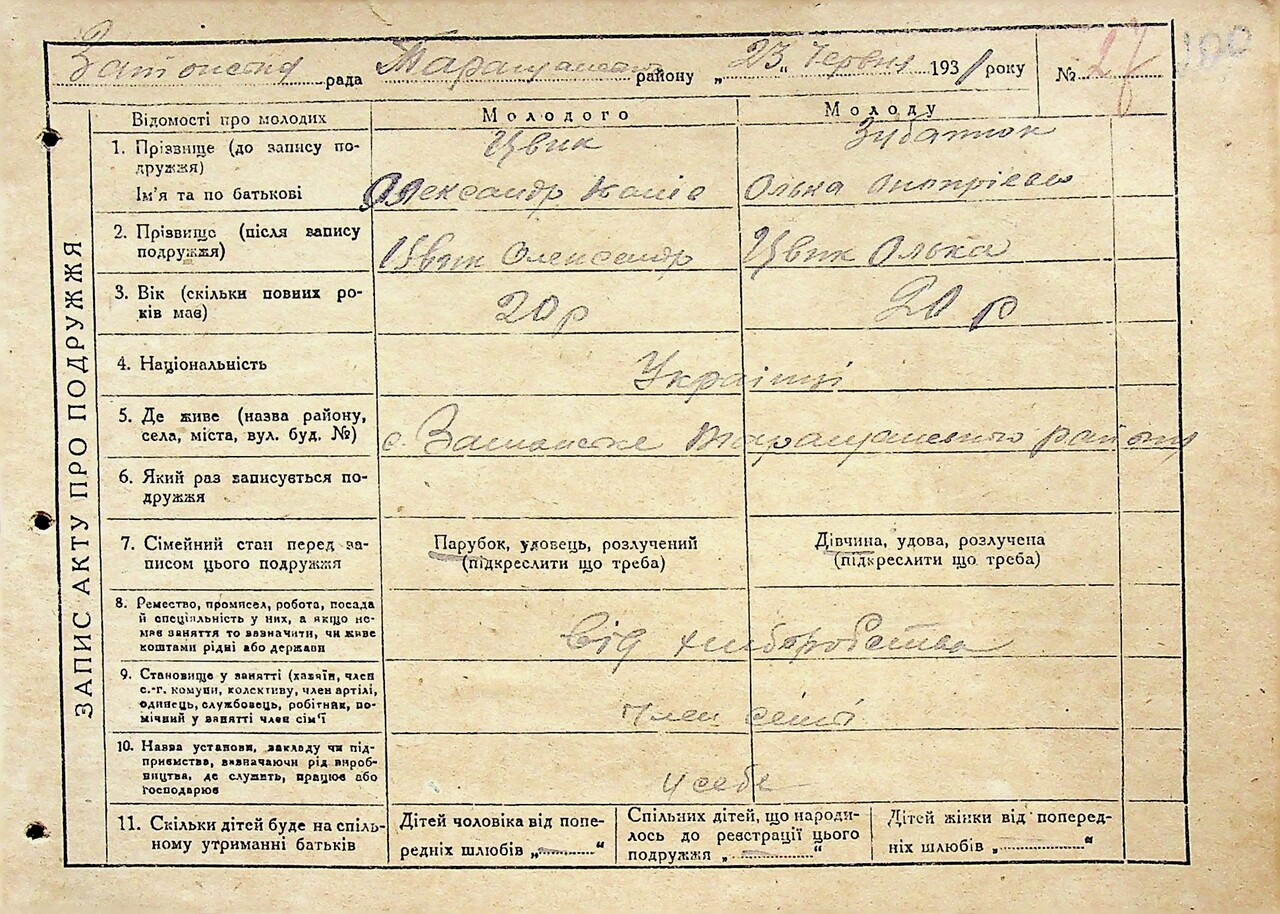 рада Таращансько району „23“ Червня 1931 року № 27
ЗАПИС АКТУ ПРО ПОДРУЖЖЯ
Відомості про молодих
Молодого
Молоду
1. Прізвище (до запису по-
дружжя)
Ім'я та по батькові
Цвик
Олександр
Олька
2. Прізвище (після запису
подружжя)
Цвик Олександр
Цвик Олька
3. Вік (скільки повних ро-
ків має)
20 р
20 р
4. Національність
Українці
5. Де живе (назва району,
села, міста, вул. буд. №)
с. Таращанського району
6. Який раз записується по-
дружжя
7. Сімейний стан перед за-
писом цього подружжя
Парубок, удовець, розлучений
(підкреслити що треба)
Дівчина, удова, розлучена
(підкреслити що треба)
8. Ремество, промисел, робота, посада
й спеціяльність у них, а якщо не-
має заняття то зазначити, чи живе
коштами рідні або держави
Від хліборобства
9. Становище у занятті (хазяїн, член
с.-г. комуни, колективу, член артілі,
одинець, службовець, робітник, по-
мічний у занятті член сім'ї
Член семї
10. Назва установи, закладу чи під-
приємства, зазначаючи рід вироб-
ництва, де служить, працює або
господарює
У себе
11. Скільки дітей буде на спіль-
ному утриманні батьків
Дітей чоловіка від попе-
редніх шлюбів „ “
Спільних дітей, що народи-
лось до реєстрації цього
подружжя „ “
Дітей жінки від поперед-
ніх шлюбів „ “